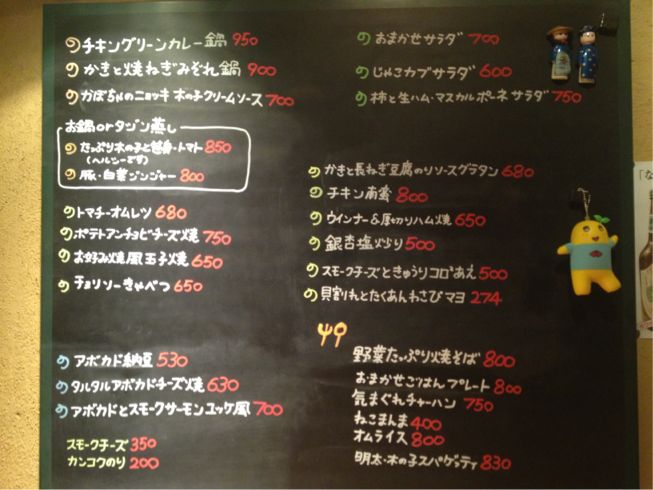 チキングリーンカレー鍋 950
かきと焼ねぎみぞれ鍋 900
かぼちゃのニョッキ 木の子クリームソース 700
お鍋orタジン蒸し
たっぷり木の子と トマト 850
(ヘルシーです)
豚・白菜ジンジャー 800
トマチーオムレツ 680
ポテトアンチョビチーズ焼 750
お好み焼風玉子焼 650
チョリソーきゃべつ 650
アボカド納豆 530
タルタルアボカドチーズ焼 630
アボカドとスモークサーモンユッケ風 700
スモークチーズ 350
カンコクのり 200
おまかせサラダ 700
じゃこカブサラダ 600
柿と生ハム・マスカルポーネサラダ 750
かきと長ねぎ豆腐のソースグラタン 680
チキン南蛮 800
ウインナー&厚切りハム焼 650
銀杏塩炒り 500
スモークチーズときゅうりコロコロあえ 500
貝割れとたくあんわさびマヨ 274
野菜たっぷり焼そば 800
おまかせごはんプレート 800
気まぐれチャーハン 750
ねこまんま 400
オムライス 800
明太・木の子スパゲッティ 830
「な